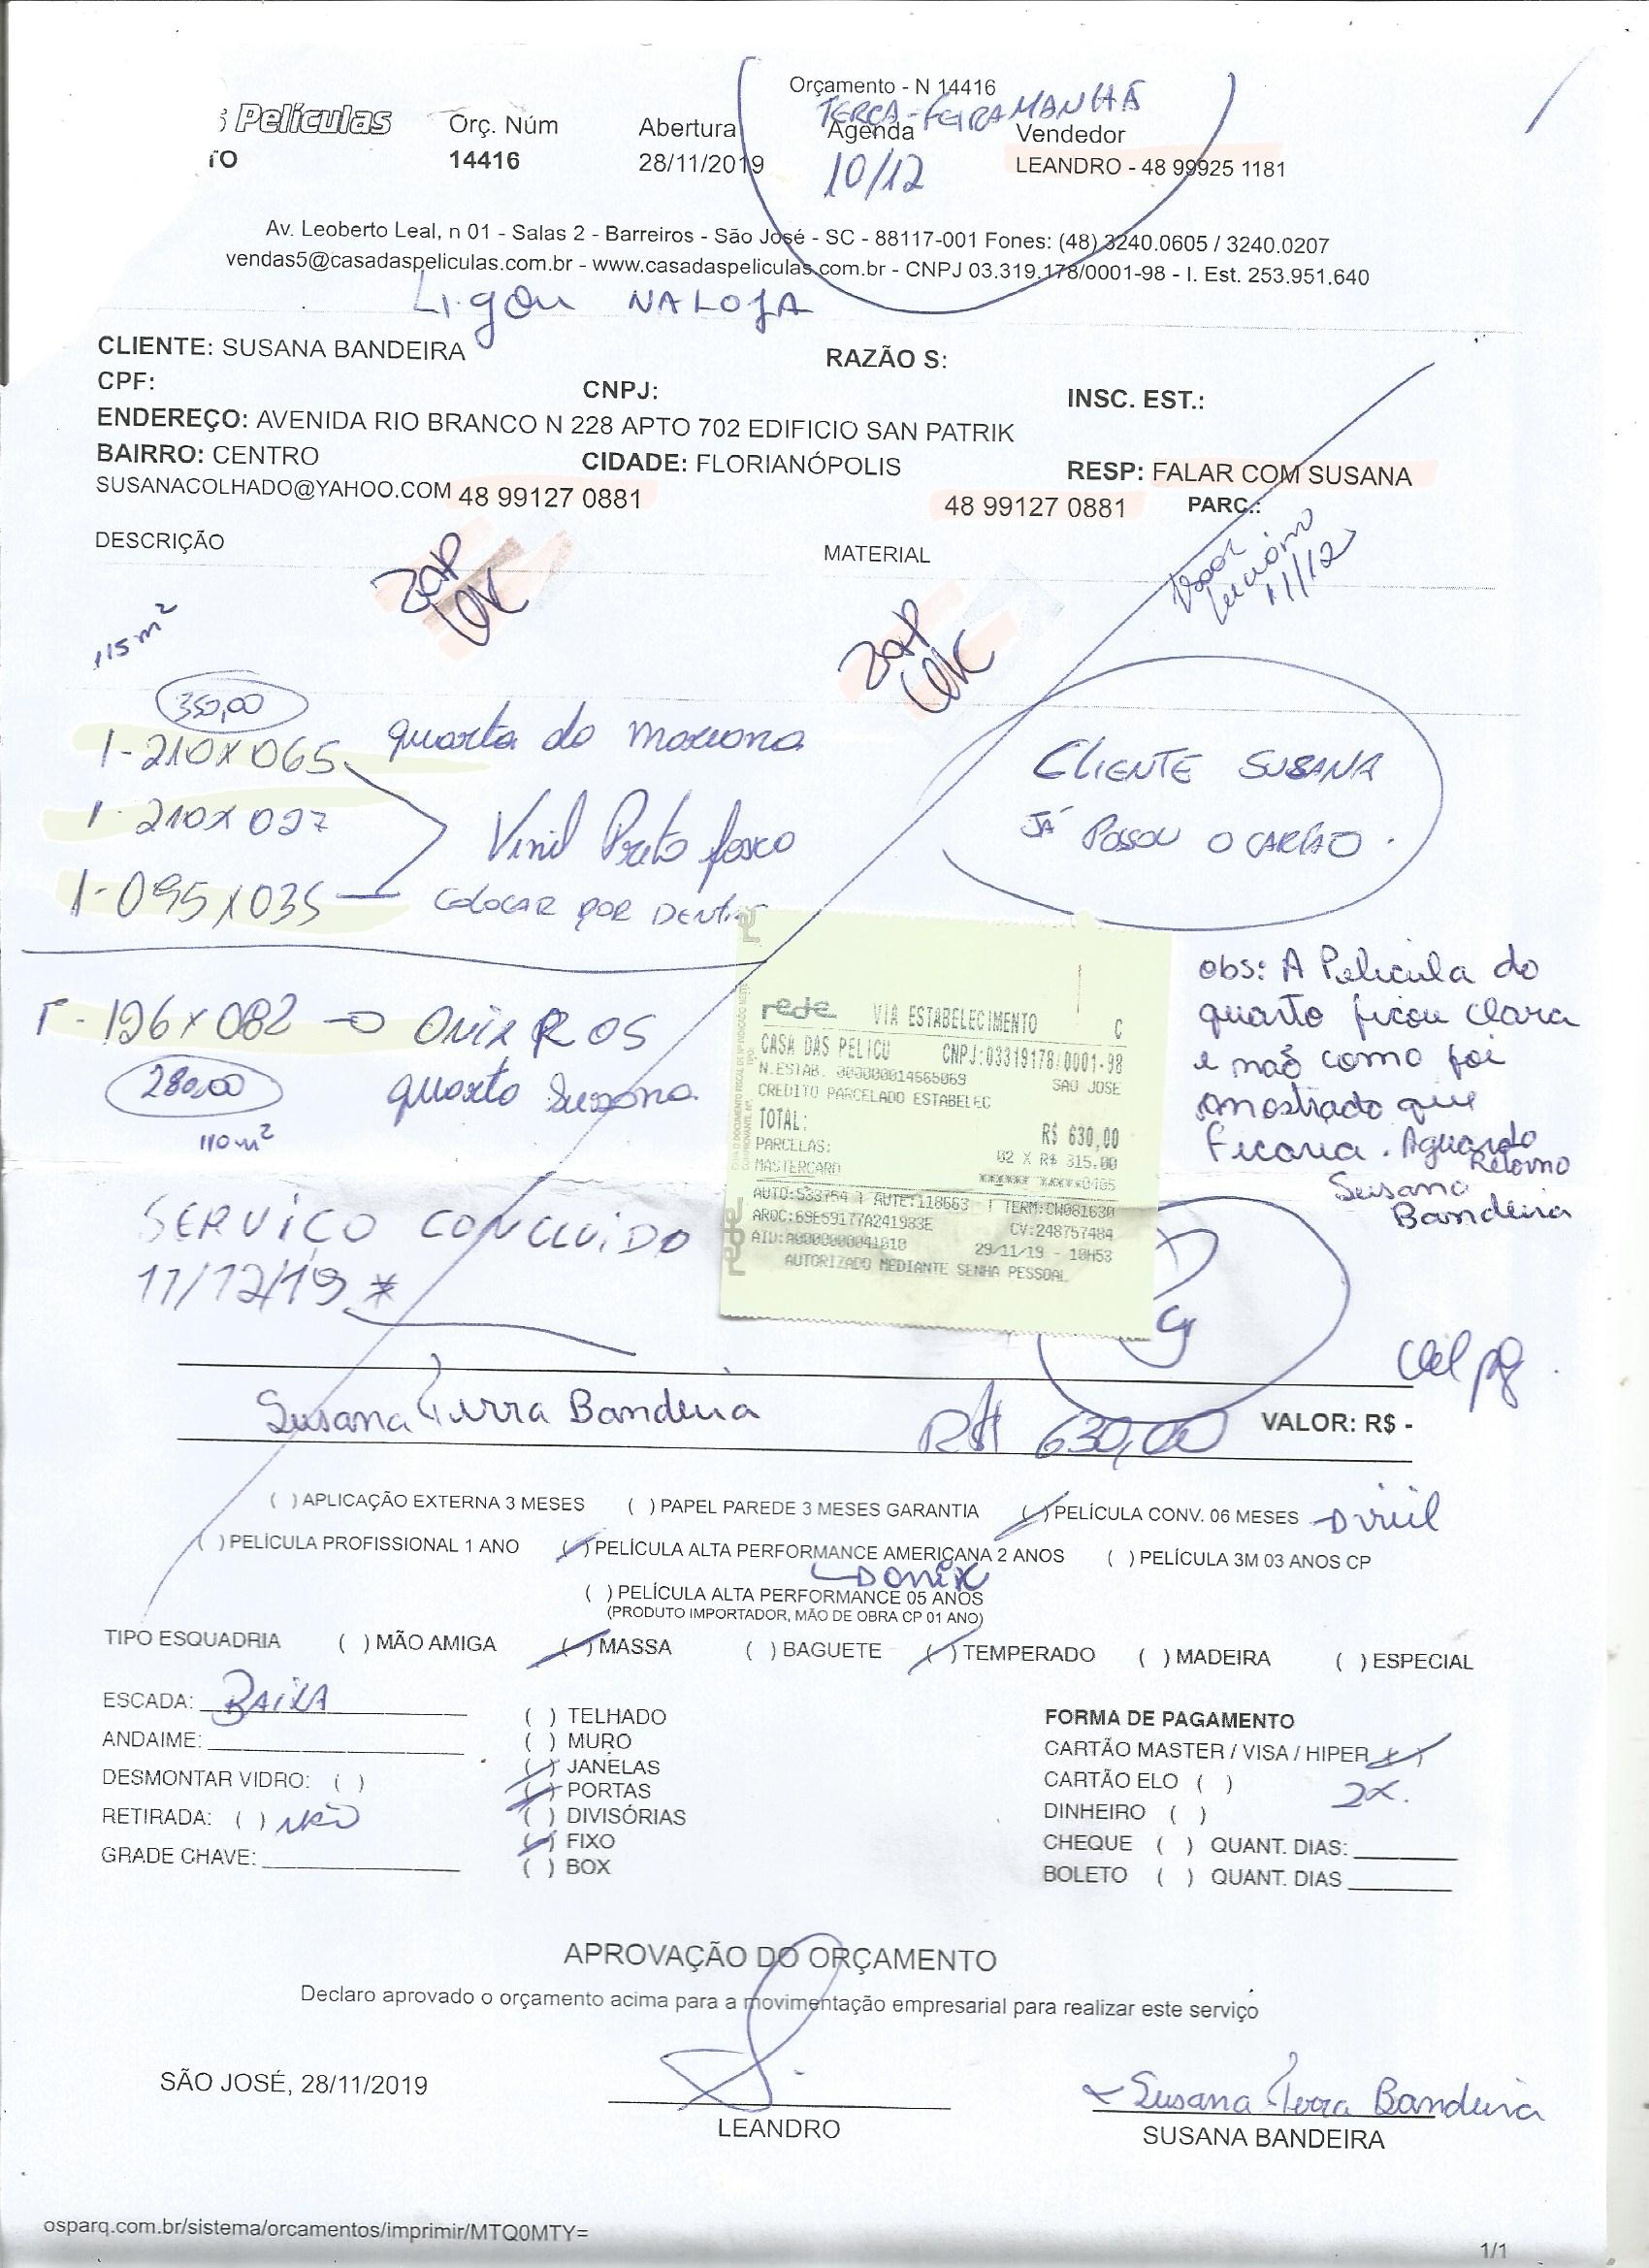 Orçamento - N 14416
TERÇA-FEIRA MANHÃ
s Películas Orç. Núm Abertura Agenda Vendedor
TO 14416 28/11/2019 10/12 LEANDRO - 48 99925 1181
Av. Leoberto Leal, n 01 - Salas 2 - Barreiros - São José - SC - 88117-001 Fones: (48) 3240.0605 / 3240.0207
vendas5@casadaspeliculas.com.br - www.casadaspeliculas.com.br - CNPJ 03.319.178/0001-98 - I. Est. 253.951.640
Ligou NA LOJA
CLIENTE: SUSANA BANDEIRA RAZÃO S:
CPF: CNPJ: INSC. EST.:
ENDEREÇO: AVENIDA RIO BRANCO N 228 APTO 702 EDIFICIO SAN PATRIK
BAIRRO: CENTRO CIDADE: FLORIANÓPOLIS RESP: FALAR COM SUSANA
SUSANACOLHADO@YAHOO.COM 48 99127 0881 48 99127 0881 PARC.:
DESCRIÇÃO MATERIAL
11/12
ZAP OK
ZAP OK
115 m²
350,00
1-210X065 quarta do mariana
1-210X027 Vinil Preto fosco
1-095X035 COLOCAR POR DENTRO
CLIENTE SUSANA
JÁ PASSOU O CARTÃO.
1-126X082 ONIX R 05
280,00 quarto Susana
110m²
obs: A Pelicula do
quarto ficou clara
e não como foi
mostrado que
ficaria. Aguardo
Retorno
Susana
Bandeira
rede VIA ESTABELECIMENTO C
CASA DAS PELICU CNPJ:03319178/0001-98
N.ESTAB. 000000014665069 SAO JOSE
CREDITO PARCELADO ESTABELEC
TOTAL: R$ 630,00
PARCELAS: 02 X R$ 315,00
MASTERCARD ****** *****0405
AUTO:533754 AUTE:118663 TERM:CW081630
ARQC:69E59177A241983E CV:248757484
AID:A0000000041010 29/11/19 - 10H53
AUTORIZADO MEDIANTE SENHA PESSOAL
rede
SERVIÇO CONCLUIDO
11/12/19 *
Pg
pg.
Susana Terra Bandeira R$ 630,00 VALOR: R$ -
( ) APLICAÇÃO EXTERNA 3 MESES ( ) PAPEL PAREDE 3 MESES GARANTIA ( ) PELÍCULA CONV. 06 MESES
( ) PELÍCULA PROFISSIONAL 1 ANO ( ) PELÍCULA ALTA PERFORMANCE AMERICANA 2 ANOS ( ) PELÍCULA 3M 03 ANOS CP
onix
( ) PELÍCULA ALTA PERFORMANCE 05 ANOS
(PRODUTO IMPORTADOR, MÃO DE OBRA CP 01 ANO)
TIPO ESQUADRIA ( ) MÃO AMIGA ( ) MASSA ( ) BAGUETE ( ) TEMPERADO ( ) MADEIRA ( ) ESPECIAL
ESCADA: BAIXA
ANDAIME:
DESMONTAR VIDRO: ( )
RETIRADA: ( ) NÃO
GRADE CHAVE:
( ) TELHADO
( ) MURO
( ) JANELAS
( ) PORTAS
( ) DIVISÓRIAS
( ) FIXO
( ) BOX
FORMA DE PAGAMENTO
CARTÃO MASTER / VISA / HIPER ( )
CARTÃO ELO ( ) 2X.
DINHEIRO ( )
CHEQUE ( ) QUANT. DIAS:
BOLETO ( ) QUANT. DIAS
APROVAÇÃO DO ORÇAMENTO
Declaro aprovado o orçamento acima para a movimentação empresarial para realizar este serviço
SÃO JOSÉ, 28/11/2019
LEANDRO
Susana Terra Bandeira
SUSANA BANDEIRA
osparq.com.br/sistema/orcamentos/imprimir/MTQ0MTY=
1/1